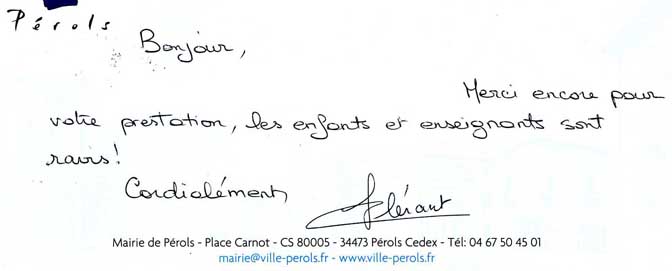 Pérols
Bonjour,
Merci encore pour
votre prestation, les enfants et enseignants sont
ravis!
Cordialément
Mairie de Pérols - Place Carnot - CS 80005 - 34473 Pérols Cedex - Tél: 04 67 50 45 01
mairie@ville-perols.fr - www.ville-perols.fr